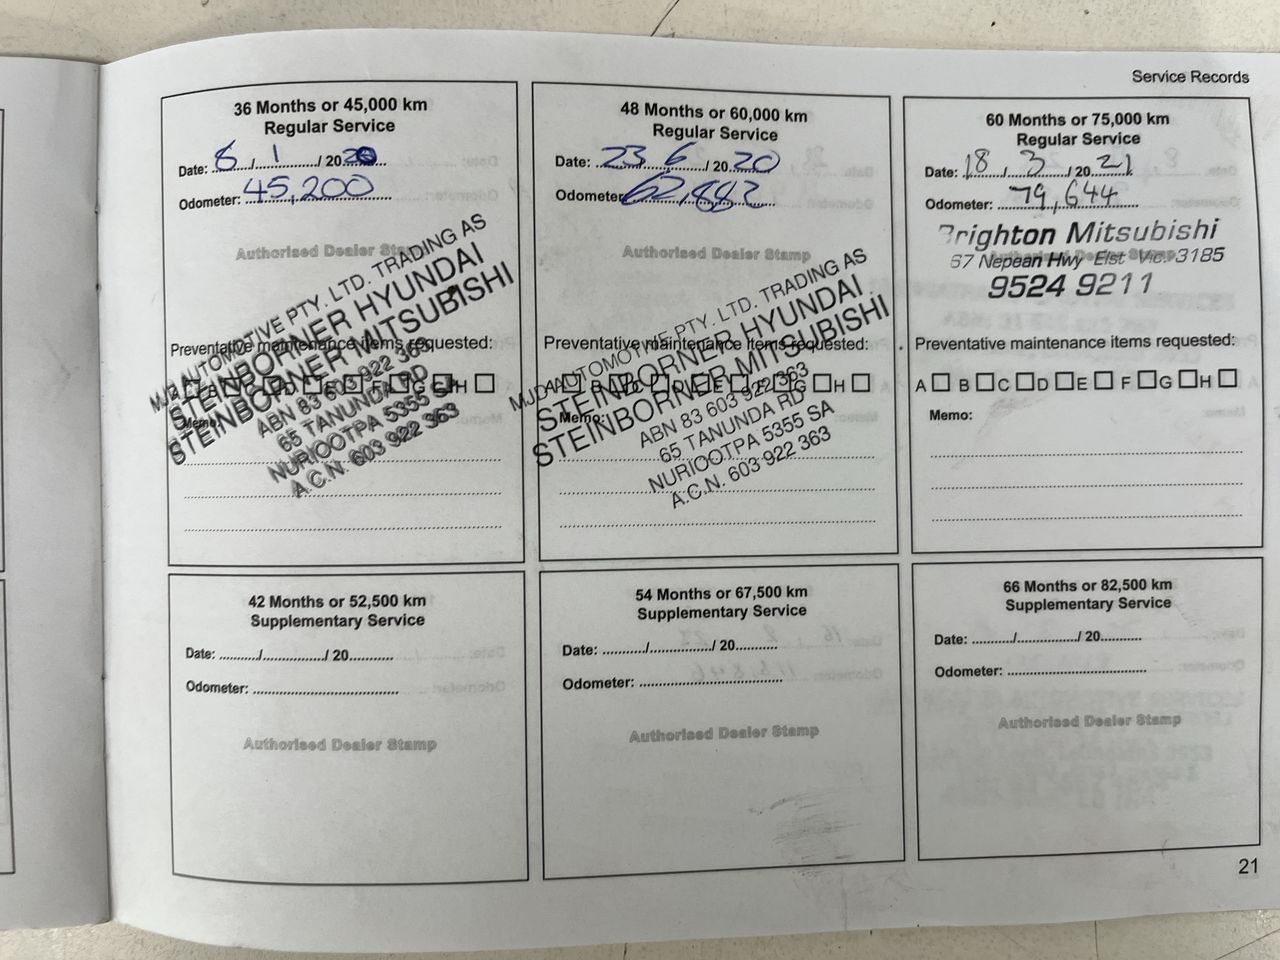 Service Records
36 Months or 45,000 km
Regular Service
Date: 6 / 1 / 20 20
Odometer: 45,200
Authorised Dealer Stamp
MJD AUTOMOTIVE PTY. LTD. TRADING AS
STEINBORNER HYUNDAI
STEINBORNER MITSUBISHI
ABN 83 603 922 363
65 TANUNDA RD
NURIOOTPA 5355 SA
A.C.N. 603 922 363
Preventative maintenance items requested:
A B C D E F G H
Memo:
48 Months or 60,000 km
Regular Service
Date: 23 / 6 / 20 20
Odometer: 62,882
Authorised Dealer Stamp
MJD AUTOMOTIVE PTY. LTD. TRADING AS
STEINBORNER HYUNDAI
STEINBORNER MITSUBISHI
ABN 83 603 922 363
65 TANUNDA RD
NURIOOTPA 5355 SA
A.C.N. 603 922 363
Preventative maintenance items requested:
A B C D E F G H
Memo:
60 Months or 75,000 km
Regular Service
Date: 18 / 3 / 20 21
Odometer: 79,644
Authorised Dealer Stamp
Brighton Mitsubishi
67 Nepean Hwy Elst Vic. 3185
9524 9211
Preventative maintenance items requested:
A B C D E F G H
Memo:
42 Months or 52,500 km
Supplementary Service
Date: ........../................/ 20...........
Odometer: ......................................
Authorised Dealer Stamp
54 Months or 67,500 km
Supplementary Service
Date: ........../................/ 20...........
Odometer: ......................................
Authorised Dealer Stamp
66 Months or 82,500 km
Supplementary Service
Date: ........../................/ 20...........
Odometer: ......................................
Authorised Dealer Stamp
21